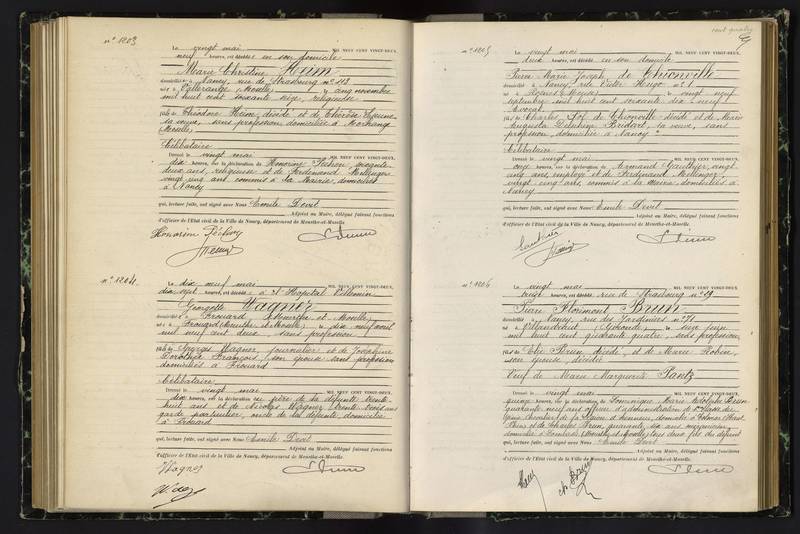 n° 1203
Le vingt mai MIL NEUF CENT VINGT-DEUX,
neuf heures, est décédée en son domicile
Marie Christine Heim
domiciliée à Nancy, rue de Strasbourg n° 112
née à Vallerange (Moselle), le onze novembre
mil huit cent soixante seize, religieuse
fille de Théodore Heim, décédé et de Thérèse
sa veuve, sans profession, domiciliée à Morhange
Moselle
Célibataire
Dressé le vingt mai MIL NEUF CENT VINGT-DEUX,
dix heures, sur la déclaration de Honorine Péchon, soixante
deux ans, religieuse et de Ferdinand Mellinger
vingt cinq ans commis à la Mairie, domiciliés
à Nancy
qui, lecture faite, ont signé avec Nous Emile Devit
Adjoint au Maire, délégué faisant fonctions
d'officier de l'Etat civil de la Ville de Nancy, département de Meurthe-et-Moselle.
Honorine Péchon
n° 1204
Le dix neuf mai MIL NEUF CENT VINGT-DEUX,
dix sept heures, est décédée à l'Hôpital Villemin
Georgette Wagner
domiciliée à Frouard (Meurthe et Moselle)
née à Frouard (Meurthe et Moselle) le dix neuf avril
mil neuf cent deux, sans profession
fille de Georges Wagner journalier et de Joséphine
Dorothée François, son épouse sans profession
domiciliés à Frouard
Célibataire
Dressé le vingt mai MIL NEUF CENT VINGT-DEUX,
dix heures, sur la déclaration du père de la défunte trente
huit ans et de Nicolas Wagner trente trois ans
garde particulier, oncle de la défunte, domiciliés
à Frouard
qui, lecture faite, ont signé avec Nous Emile Devit
Adjoint au Maire, délégué faisant fonctions
d'officier de l'Etat civil de la Ville de Nancy, département de Meurthe-et-Moselle.
Wagner
cent quatre
n° 1205
Le vingt mai MIL NEUF CENT VINGT-DEUX,
deux heures, est décédé en son domicile
Pierre Marie Joseph de Thionville
domicilié à Nancy, rue Victor Hugo n° 1
né à (Meuse) le vingt neuf
septembre mil huit cent soixante dix neuf
Avocat
fils de Charles de Thionville décédé et de Marie
Augusta Delphine sa veuve, sans
profession, domiciliée à Nancy
Célibataire
Dressé le vingt mai MIL NEUF CENT VINGT-DEUX,
onze heures, sur la déclaration de Armand Gauthier, vingt
cinq ans, employé et de Ferdinand Mellinger
vingt cinq ans, commis à la Mairie domiciliés à
Nancy
qui, lecture faite, ont signé avec Nous Emile Devit
Adjoint au Maire, délégué faisant fonctions
d'officier de l'Etat civil de la Ville de Nancy, département de Meurthe-et-Moselle.
Gauthier
n° 1206
Le vingt mai MIL NEUF CENT VINGT-DEUX,
heures, est décédé rue de Strasbourg n° 29
Pierre Florimont Brun
domicilié à Nancy, rue des Jardiniers n° 71
né à Villandraut (Gironde) le juin
mil huit cent quarante quatre, sans profession
fils de Elie Brun, décédé, et de Marie Robin,
son épouse, décédée
Veuf de Marie Marguerite Pantz
Dressé le vingt mai MIL NEUF CENT VINGT-DEUX,
quinze heures, sur la déclaration de Dominique Marie Adolphe Brun
quarante neuf ans officier d'administration de
classe, chevalier de la légion d'honneur domicilié à Colmar Haut
Rhin, et de Charles Brun, quarante six ans
domicilié à (Meurthe et Moselle) tous deux fils du défunt
qui, lecture faite, ont signé avec Nous Emile Devit
Adjoint au Maire, délégué faisant fonctions
d'officier de l'Etat civil de la Ville de Nancy, département de Meurthe-et-Moselle.
Brun
ch. Brun